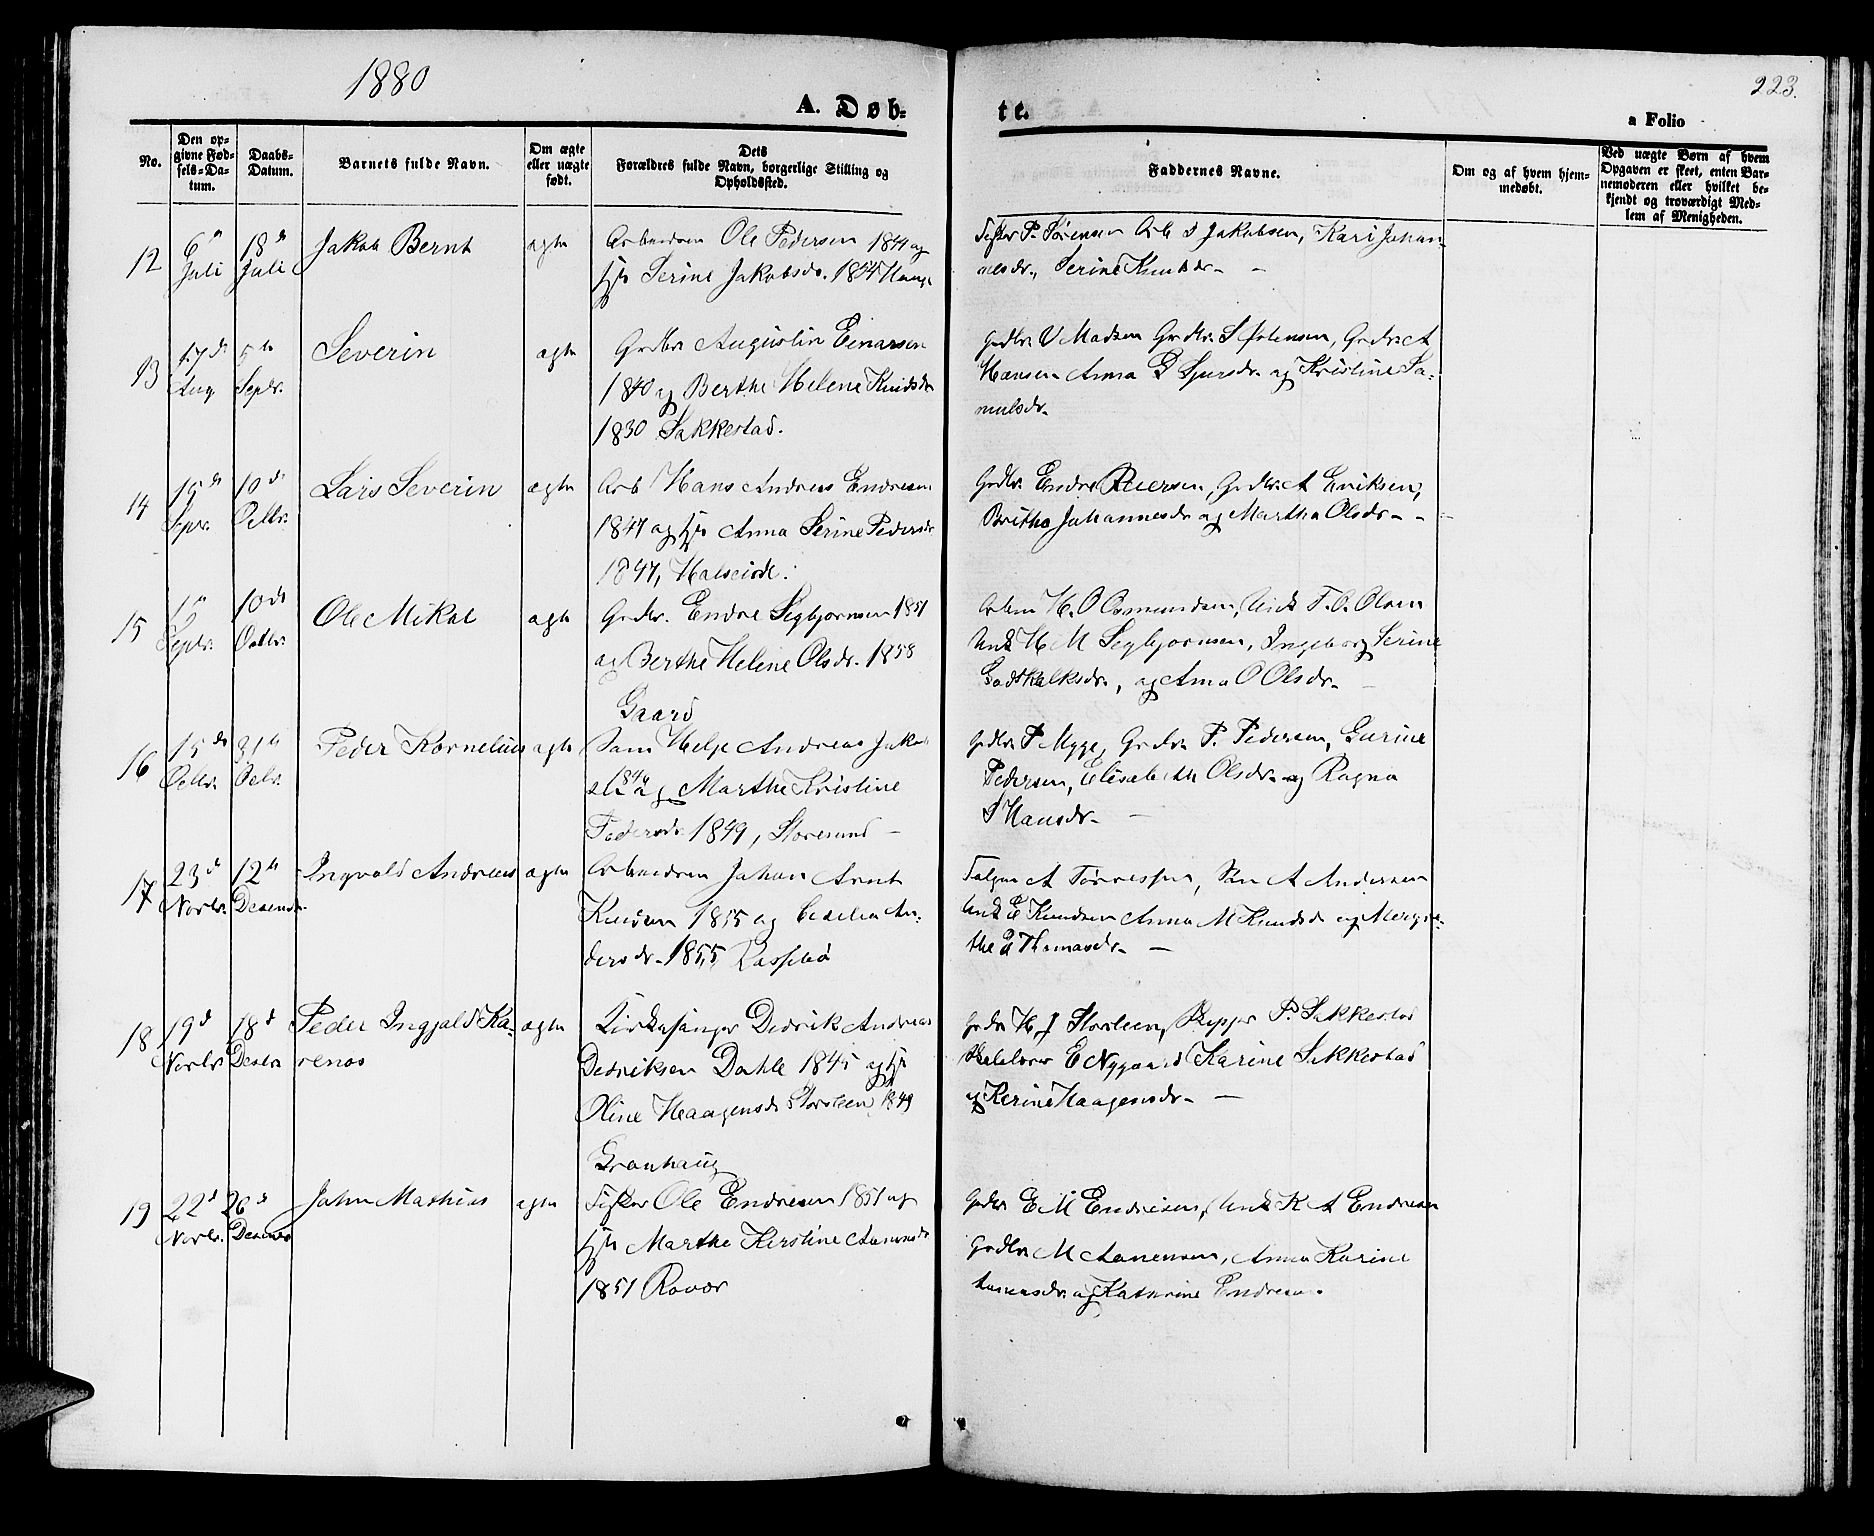 1880
223.
A. Døb-
te.
a Folio
No.
Den op-
givne Fød-
sels-Da-
tum.
Daabs-
Datum.
Barnets fulde Navn.
Om ægte
eller uægte
født.
Dets
Forældres fulde Navn, borgerlige Stilling og
Opholdssted.
Faddernes Navne.
Om og af hvem hjem-
medøbt.
Ved uægte Børn af hvem
Opgaven er skeet, enten Bar-
nemoderen eller hvilket be-
kjendt og troværdigt Med-
lem af Menigheden.
12
6
Juli
18
Juli
Jakob Bernt
ægte
Ole Pedersen 1844 og
Serine Jakobsdr. 1854
P. Sørensen Arb S Jakobsen, Kari Johan-
nesdr., Serine Knutsdr -
13
17 de
Aug
5te
Septr.
Severin
ægte
Grdbr Augustin Einarsen
1840 og Berthe Helene Knudsdr
1830 Sakkestad.
Grdbr. V Madsen Grdbr. S Grdbr A
Hansen Anna og Kristine Sa-
mulsdr.
14
15 de
Septr.
10 de
Octbr.
Lars Severin
ægte
Arb Hans Andreas Endresen
1847 og Anna Serine Pedersdr
1847,
Grdbr. Endre Grdbr. A Eriksen,
Britha Johannesdr og Martha Olsdr - -
15
Septr.
10 de
Octbr.
Ole Mikal
ægte
Grdbr. Endre Segbjornsen 1851
og Berthe Helene Olsdr. 1858
Gaard
H. O Osmundsen, Unk T. O. Olsen
Unk H M Segbjornsen, Ingeborg Serine
Godtskalksdr., og Anna O Olsdr. -
16
15 de
Octbr.
31te
Octbr.
Peder Kornelius
ægte
Helje Andreas
og Marthe Kristine
Pedersdr. 1849, Storesund -
Grdbr P Myge, Grdbr P. Pedersen, Gurine
Pedersen, Elisabeth Olsdr. og Ragna
S Hansdr -
17
23 d
Novbr.
12te
Ingvald Andreas
ægte
Arbeidsm Johan Arnt
Knudsen 1855 og Cecilia An-
dersdr. 1855
A A Andersen
Unk E Knudsen Anna M Knudsdr og Margre-
the E Thomasdr. -
18
19 d
Novbr
18 d
Peder Ingjald Ka-
renos
ægte
Kirkesanger Dedrik Andreas
Dedriksen Dahle 1845 og
Oline Haagensdr Storsteen 1849
Gronhaug
Grdbr H. J Storsteen, Skipper P. Sakkestad
E Nygaard Karine Sakkestad
og Kerine Haagensdr -
19
22 d
Novbr.
26 d
John Mathias
ægte
Fisker Ole Endresen 1851 og
Marthe Kirstine Aanensdr
1851 Røvær
Grdbr E M Endresen, Unk K A Endresen
Grdbr M Aanensen, Anna Karine
Aanensdr. og Kathrine Endresen.